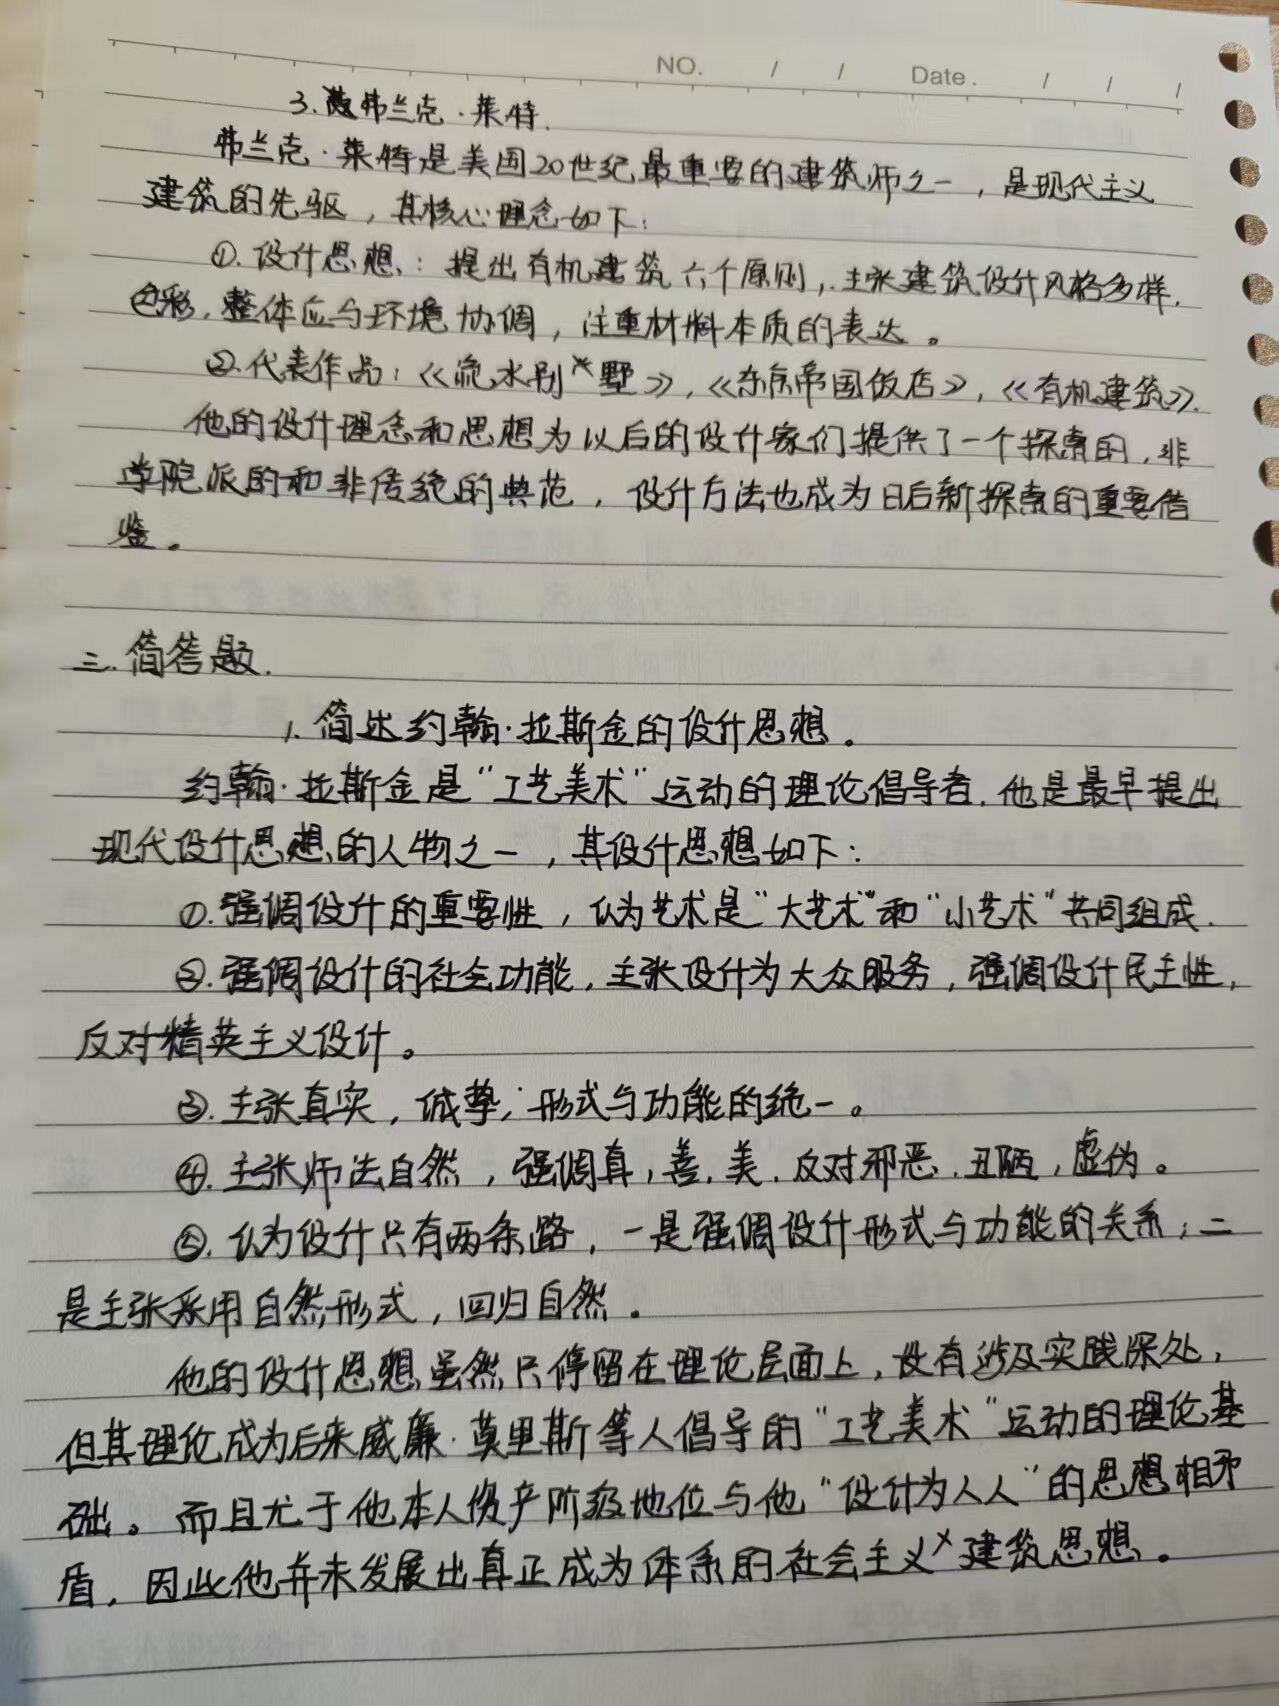 NO. / / Date. / / /
3. 弗兰克·莱特.
弗兰克·莱特是美国20世纪最重要的建筑师之一，是现代主义
建筑的先驱，其核心理念如下：
①. 设计思想：提出有机建筑六个原则，主张建筑设计风格多样，
色彩，整体应与环境协调，注重材料本质的表达。
②. 代表作品：《流水别墅》，《东京帝国饭店》，《有机建筑》.
他的设计理念和思想为以后的设计家们提供了一个探索的，非
学院派的和非传统的典范，设计方法也成为日后新探索的重要借
鉴。
三. 简答题.
1. 简述约翰·拉斯金的设计思想。
约翰·拉斯金是“工艺美术”运动的理论倡导者，他是最早提出
现代设计思想的人物之一，其设计思想如下：
①. 强调设计的重要性，认为艺术是“大艺术”和“小艺术”共同组成.
②. 强调设计的社会功能，主张设计为大众服务，强调设计民主性，
反对精英主义设计。
③. 主张真实，诚挚，形式与功能的统一。
④. 主张师法自然，强调真，善，美，反对邪恶，丑陋，虚伪。
⑤. 认为设计只有两条路，一是强调设计形式与功能的关系；二
是主张采用自然形式，回归自然。
他的设计思想虽然只停留在理论层面上，没有涉及实践深处，
但其理论成为后来威廉·莫里斯等人倡导的“工艺美术”运动的理论基
础。而且尤于他本人资产阶级地位与他“设计为人人”的思想相矛
盾，因此他并未发展出真正成为体系的社会主义建筑思想。